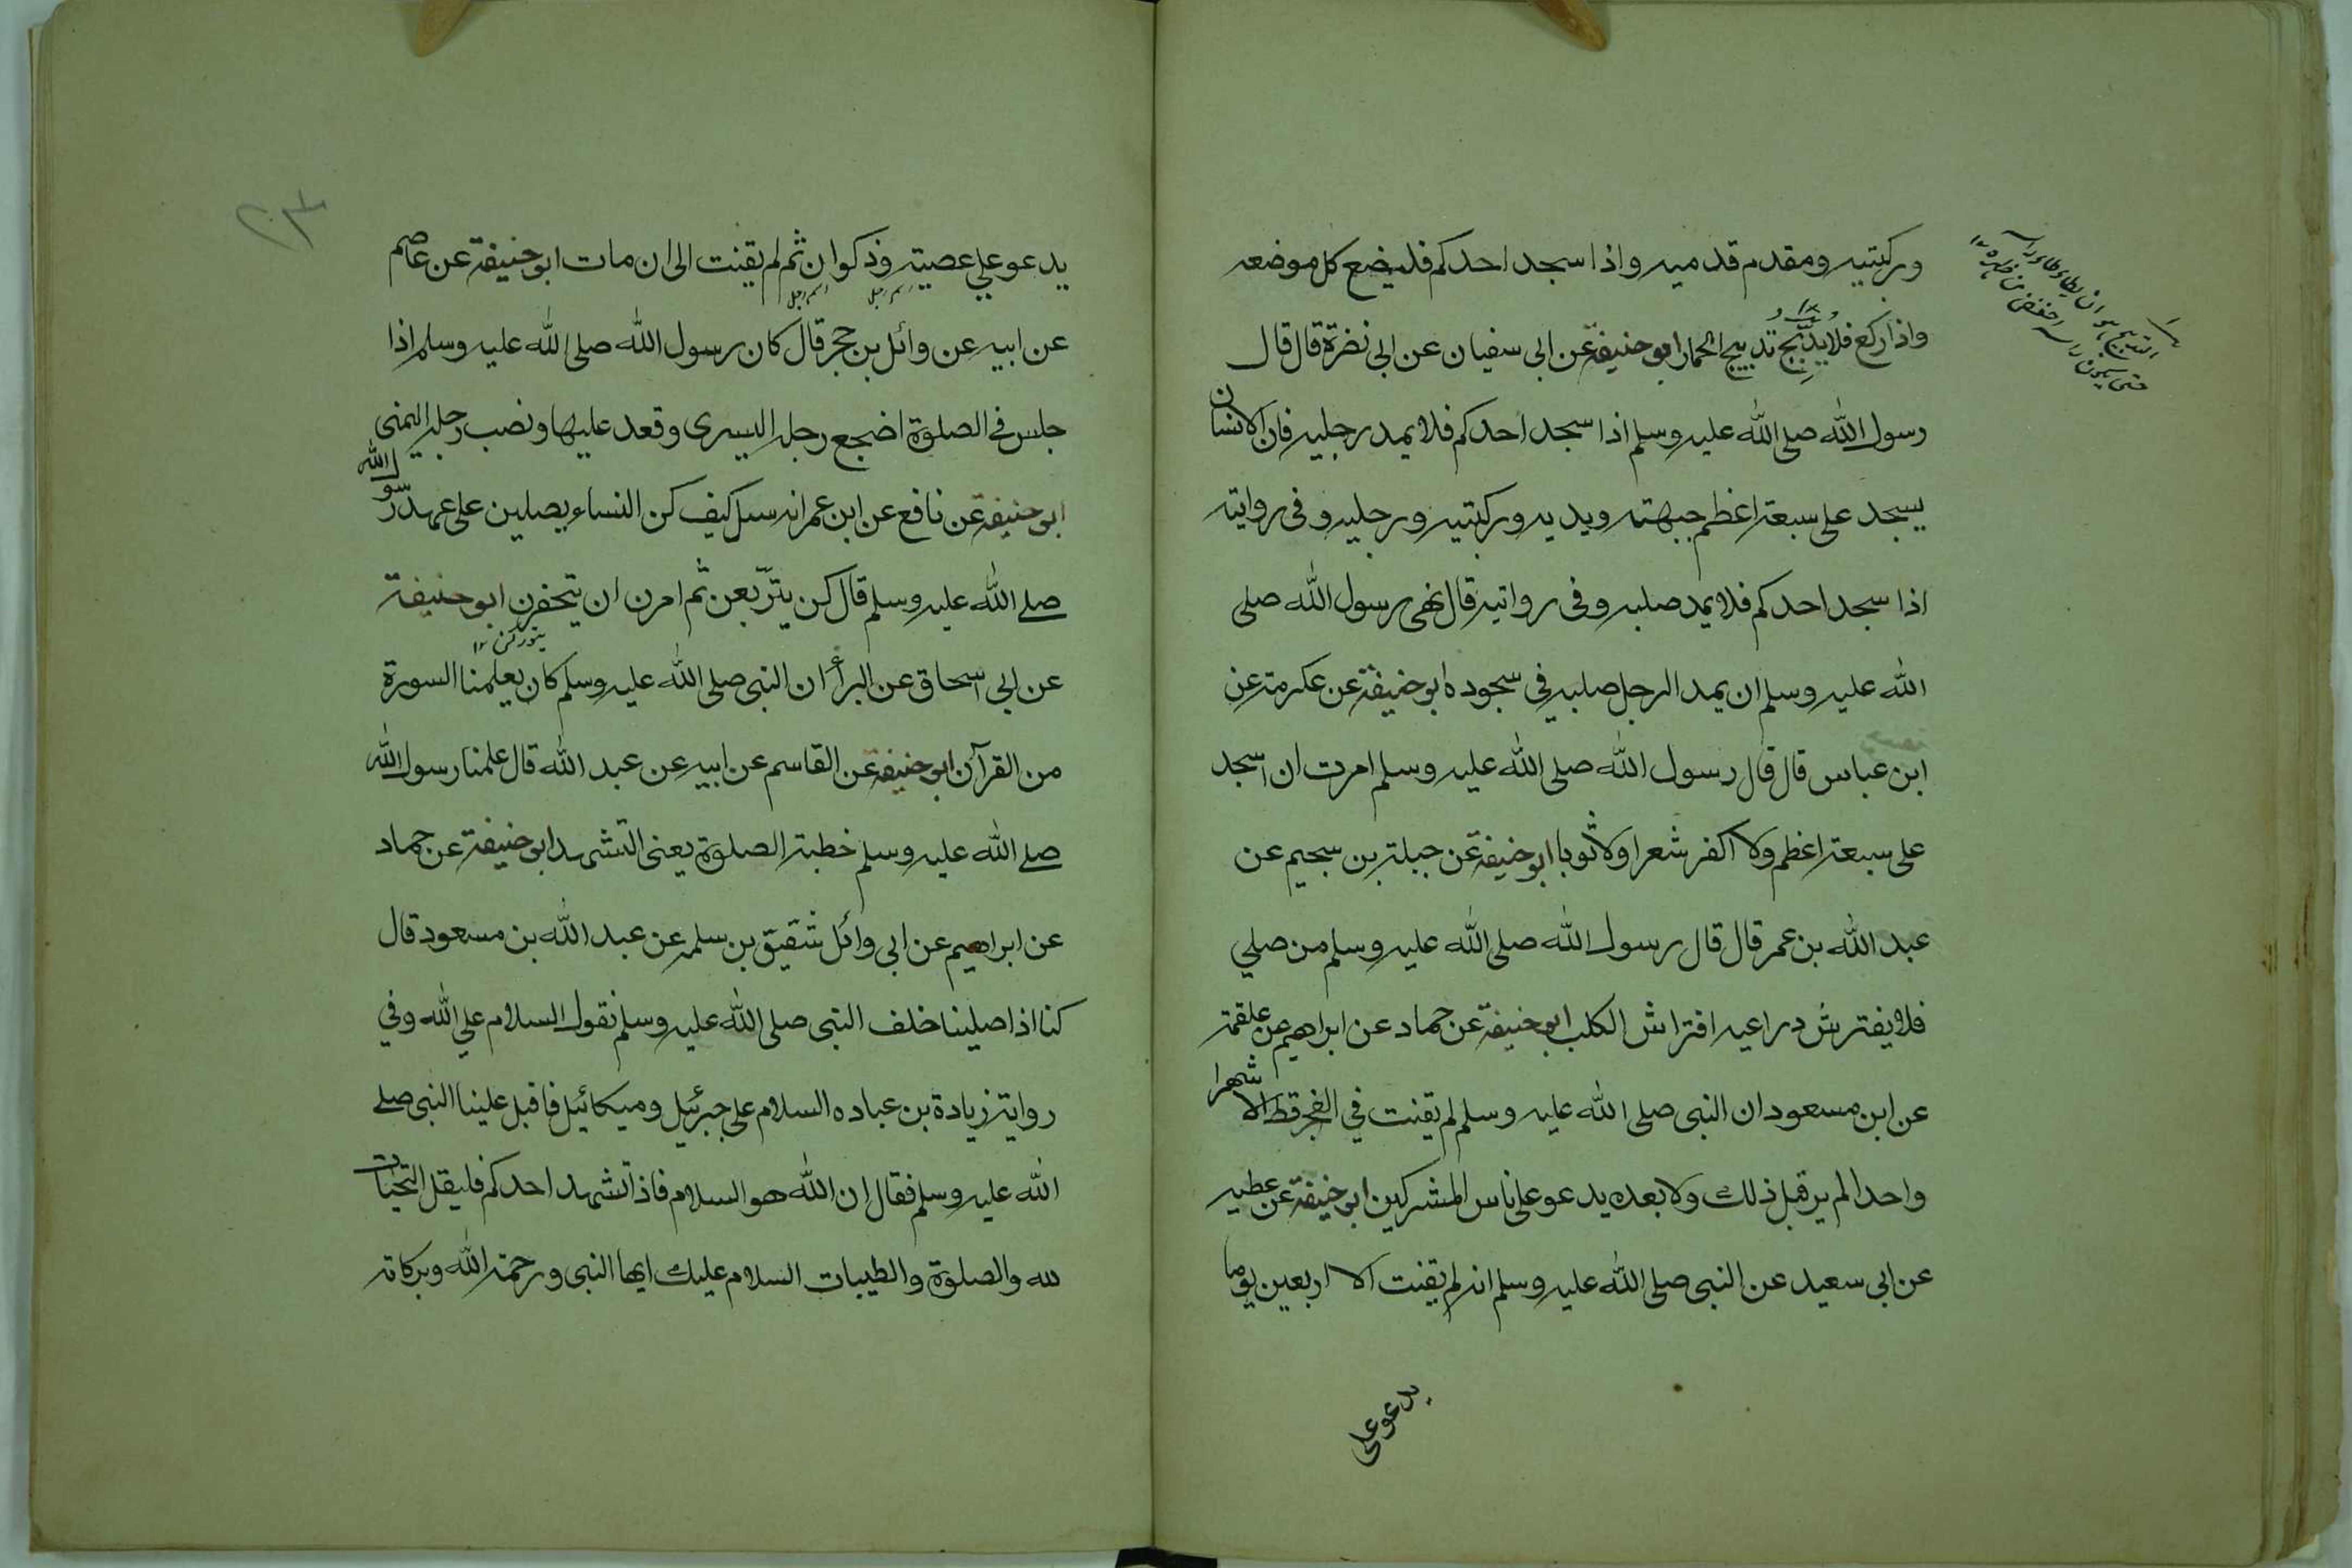 وركبتيه ومقدم قدميه واذا سجد احدكم فليضع كل موضعه
واذا ركع فلا يدبّج تدبيج الحمار ابو حنيفة عن ابى سفيان عن ابى نضرة قال قال
رسول الله صلى الله عليه وسلم اذا سجد احدكم فلا يمد رجليه فان الانسان
يسجد على سبعة اعظم جبهته ويديه وركبتيه ورجليه وفى رواية
اذا سجد احدكم فلا يمد صلبه وفى رواية قال نهى رسول الله صلى
الله عليه وسلم ان يمد الرجل صلبه فى سجوده ابو حنيفة عن عكرمة عن
ابن عباس قال قال رسول الله صلى الله عليه وسلم امرت ان اسجد
على سبعة اعظم ولا اكفر شعرا ولا ثوبا ابو حنيفة عن جبلة بن سحيم عن
عبد الله بن عمر قال قال رسول الله صلى الله عليه وسلم من صلي
فلا يفترش دراعيه افتراش الكلب ابو حنيفة عن حماد عن ابراهيم عن علقمة
عن ابن مسعود ان النبى صلى الله عليه وسلم لم يقنت في الفجر قط الا شهرا
واحدا لم ير قبل ذلك ولا بعده يدعو على ناس المشركين ابو حنيفة عن عطيه
عن ابى سعيد عن النبى صلى الله عليه وسلم انه لم يقنت الا اربعين يوما
يدعو على
التدبيج هو ان يطاطى راسه
حتى يكون راسه اخفض من ظهره ١٢
٢٣
يدعو علي عصية وذكوان ثم لم يقنت الى ان مات ابو حنيفة عن عاصم
اسم رجل اسم رجل
عن ابيه عن وائل بن حجر قال كان رسول الله صلى الله عليه وسلم اذا
جلس فى الصلوة اضجع رجله اليسرى وقعد عليها ونصب رجله اليمنى
ابو حنيفة عن نافع عن ابن عمر انه سئل كيف كن النساء يصلين على عهد رسول الله
صلے الله عليه وسلم قال كن يتربّعن ثم امرن ان يتحفزن ابو حنيفة
يتوركن ١٢
عن ابى اسحاق عن البرأ ان النبى صلى الله عليه وسلم كان يعلمنا السورة
من القرآن ابو حنيفة عن القاسم عن ابيه عن عبد الله قال علمنا رسول الله
صلے الله عليه وسلم خطبة الصلوة يعنى التشهد ابو حنيفة عن حماد
عن ابراهيم عن ابى وائل شقيق بن سلمه عن عبد الله بن مسعود قال
كنا اذا صلينا خلف النبى صلى الله عليه وسلم نقول السلام علي الله وفي
رواية زيادة بن عباده السلام على جبرئيل وميكائيل فاقبل علينا النبى صلے
الله عليه وسلم فقال ان الله هو السلام فاذا تشهد احدكم فليقل التحيات
لله والصلوة والطيبات السلام عليك ايها النبى ورحمة الله وبركاته